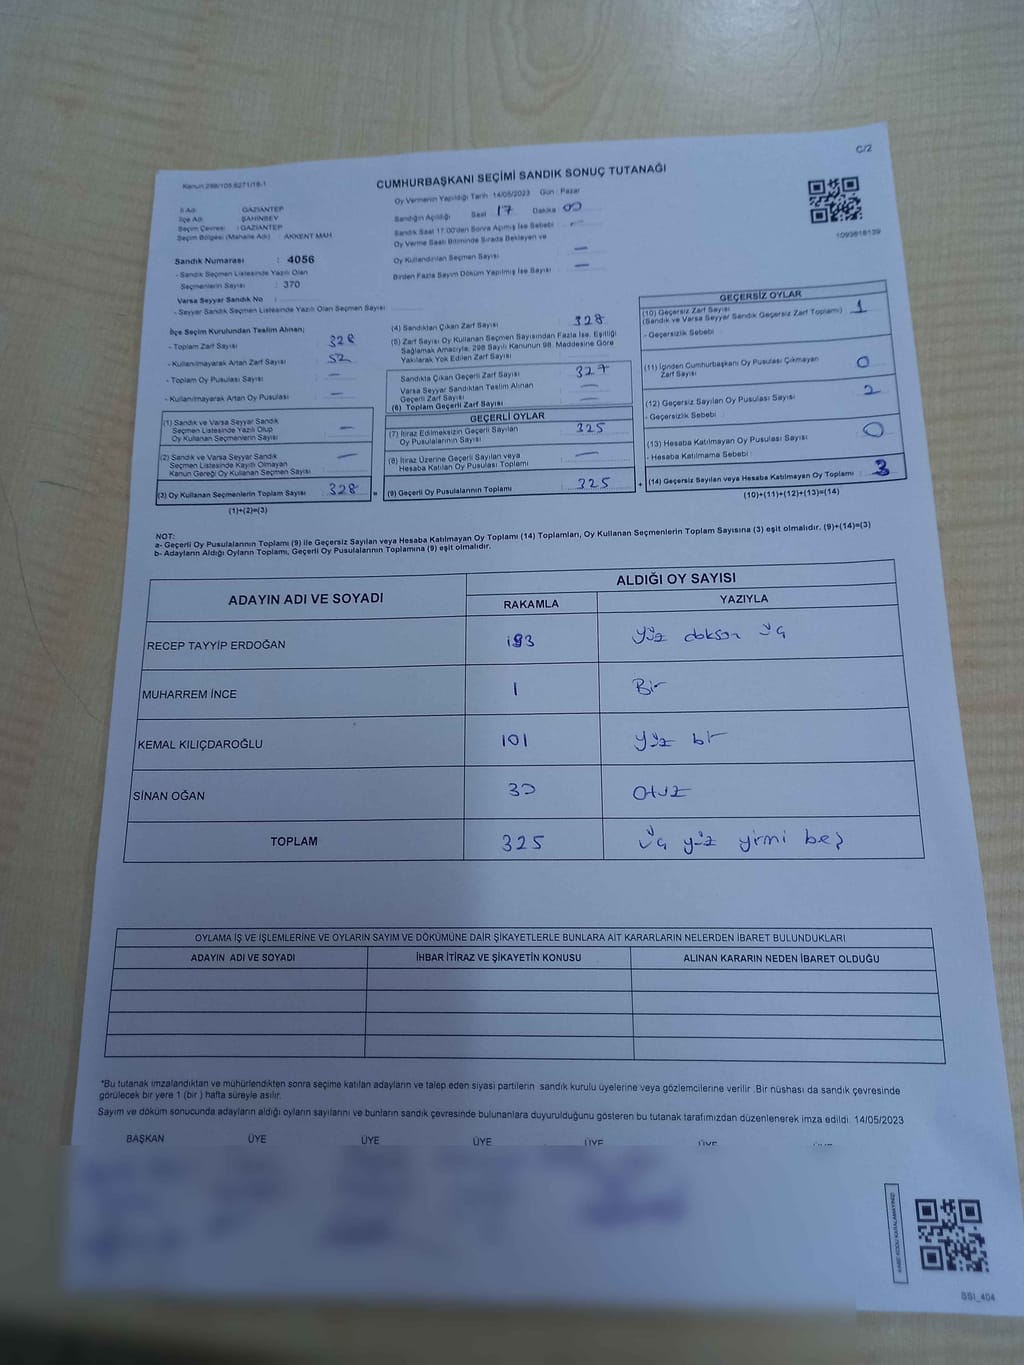 C/2
Kanun 298/105 6271/18-1
CUMHURBAŞKANI SEÇİMİ SANDIK SONUÇ TUTANAĞI
Oy Vermenin Yapıldığı Tarih 14/05/2023 Gün : Pazar
İl Adı : GAZİANTEP
İlçe Adı : ŞAHİNBEY
Seçim Çevresi : GAZİANTEP
Seçim Bölgesi (Mahalle Adı) : AKKENT MAH
Sandığın Açıldığı Saat 17 Dakika 00
Sandık Saat 17:00'den Sonra Açılmış İse Sebebi : —
Oy Verme Saati Bitiminde Sırada Bekleyen ve
Oy Kullandırılan Seçmen Sayısı —
Birden Fazla Sayım Döküm Yapılmış İse Sayısı —
1093618139
Sandık Numarası : 4056
- Sandık Seçmen Listesinde Yazılı Olan
Seçmenlerin Sayısı : 370
Varsa Seyyar Sandık No :
- Seyyar Sandık Seçmen Listesinde Yazılı Olan Seçmen Sayısı :
İlçe Seçim Kurulundan Teslim Alınan;
- Toplam Zarf Sayısı 328
- Kullanılmayarak Artan Zarf Sayısı 52
- Toplam Oy Pusulası Sayısı —
- Kullanılmayarak Artan Oy Pusulası —
(1) Sandık ve Varsa Seyyar Sandık
Seçmen Listesinde Yazılı Olup
Oy Kullanan Seçmenlerin Sayısı —
(2) Sandık ve Varsa Seyyar Sandık
Seçmen Listesinde Kayıtlı Olmayan
Kanun Gereği Oy Kullanan Seçmen Sayısı —
(3) Oy Kullanan Seçmenlerin Toplam Sayısı : 328 =
(1)+(2)=(3)
(4) Sandıktan Çıkan Zarf Sayısı 328
(5) Zarf Sayısı Oy Kullanan Seçmen Sayısından Fazla İse, Eşitliği
Sağlamak Amacıyla, 298 Sayılı Kanunun 98. Maddesine Göre
Yakılarak Yok Edilen Zarf Sayısı
Sandıkta Çıkan Geçerli Zarf Sayısı : 327
Varsa Seyyar Sandıktan Teslim Alınan
Geçerli Zarf Sayısı —
(6) Toplam Geçerli Zarf Sayısı —
GEÇERLİ OYLAR
(7) İtiraz Edilmeksizin Geçerli Sayılan
Oy Pusulalarının Sayısı : 325
(8) İtiraz Üzerine Geçerli Sayılan veya
Hesaba Katılan Oy Pusulası Toplamı —
(9) Geçerli Oy Pusulalarının Toplamı : 325 +
GEÇERSİZ OYLAR
(10) Geçersiz Zarf Sayısı
(Sandık ve Varsa Seyyar Sandık Geçersiz Zarf Toplamı) : 1
- Geçersizlik Sebebi :
(11) İçinden Cumhurbaşkanı Oy Pusulası Çıkmayan
Zarf Sayısı 0
(12) Geçersiz Sayılan Oy Pusulası Sayısı 2
- Geçersizlik Sebebi :
(13) Hesaba Katılmayan Oy Pusulası Sayısı 0
- Hesaba Katılmama Sebebi :
(14) Geçersiz Sayılan veya Hesaba Katılmayan Oy Toplamı : 3
(10)+(11)+(12)+(13)=(14)
NOT:
a- Geçerli Oy Pusulalarının Toplamı (9) ile Geçersiz Sayılan veya Hesaba Katılmayan Oy Toplamı (14) Toplamları, Oy Kullanan Seçmenlerin Toplam Sayısına (3) eşit olmalıdır. (9)+(14)=(3)
b- Adayların Aldığı Oyların Toplamı, Geçerli Oy Pusulalarının Toplamına (9) eşit olmalıdır.
ADAYIN ADI VE SOYADI ALDIĞI OY SAYISI
RAKAMLA YAZIYLA
RECEP TAYYİP ERDOĞAN 193 Yüz doksan üç
MUHARREM İNCE 1 Bir
KEMAL KILIÇDAROĞLU 101 Yüz bir
SİNAN OĞAN 30 Otuz
TOPLAM 325 Üç yüz yirmi beş
OYLAMA İŞ VE İŞLEMLERİNE VE OYLARIN SAYIM VE DÖKÜMÜNE DAİR ŞİKAYETLERLE BUNLARA AİT KARARLARIN NELERDEN İBARET BULUNDUKLARI
ADAYIN ADI VE SOYADI İHBAR İTİRAZ VE ŞİKAYETİN KONUSU ALINAN KARARIN NEDEN İBARET OLDUĞU
*Bu tutanak imzalandıktan ve mühürlendikten sonra seçime katılan adayların ve talep eden siyasi partilerin sandık kurulu üyelerine veya gözlemcilerine verilir .Bir nüshası da sandık çevresinde
görülecek bir yere 1 (bir ) hafta süreyle asılır.
Sayım ve döküm sonucunda adayların aldığı oyların sayılarını ve bunların sandık çevresinde bulunanlara duyurulduğunu gösteren bu tutanak tarafımızdan düzenlenerek imza edildi. 14/05/2023
BAŞKAN ÜYE ÜYE ÜYE ÜYE ÜYE
SSI_404